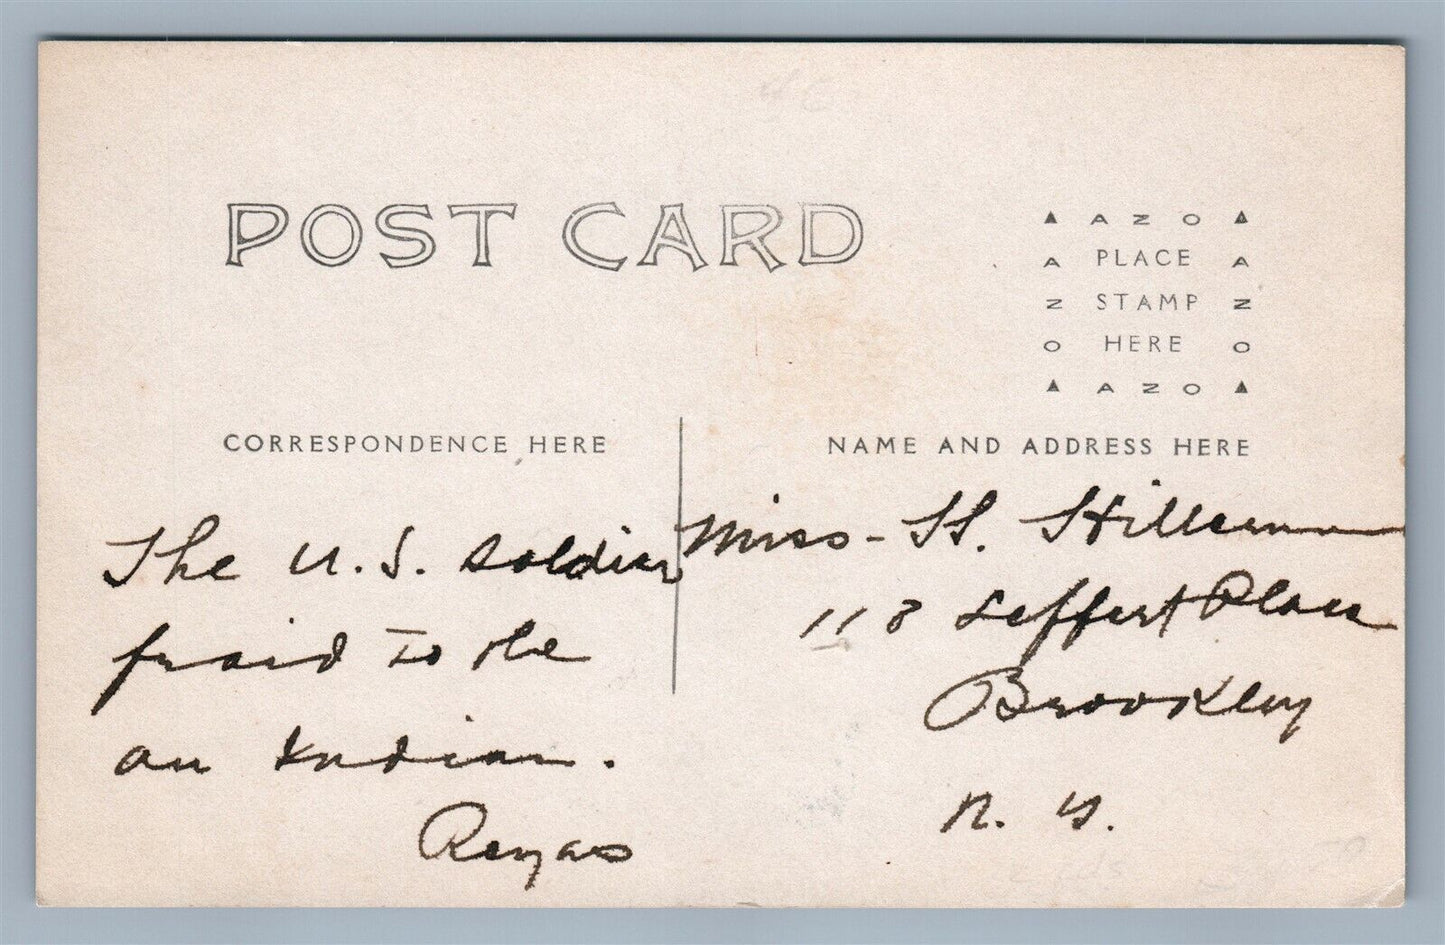 POST CARD
▲ AZO ▲
A PLACE A
Z STAMP Z
O HERE O
▲ AZO ▲
CORRESPONDENCE HERE
NAME AND ADDRESS HERE
The U.S. soldier
fraid to the
an Indian.
Reyas
Miss - H. Hilleman
118 Leffert Place
Brookley
N. Y.